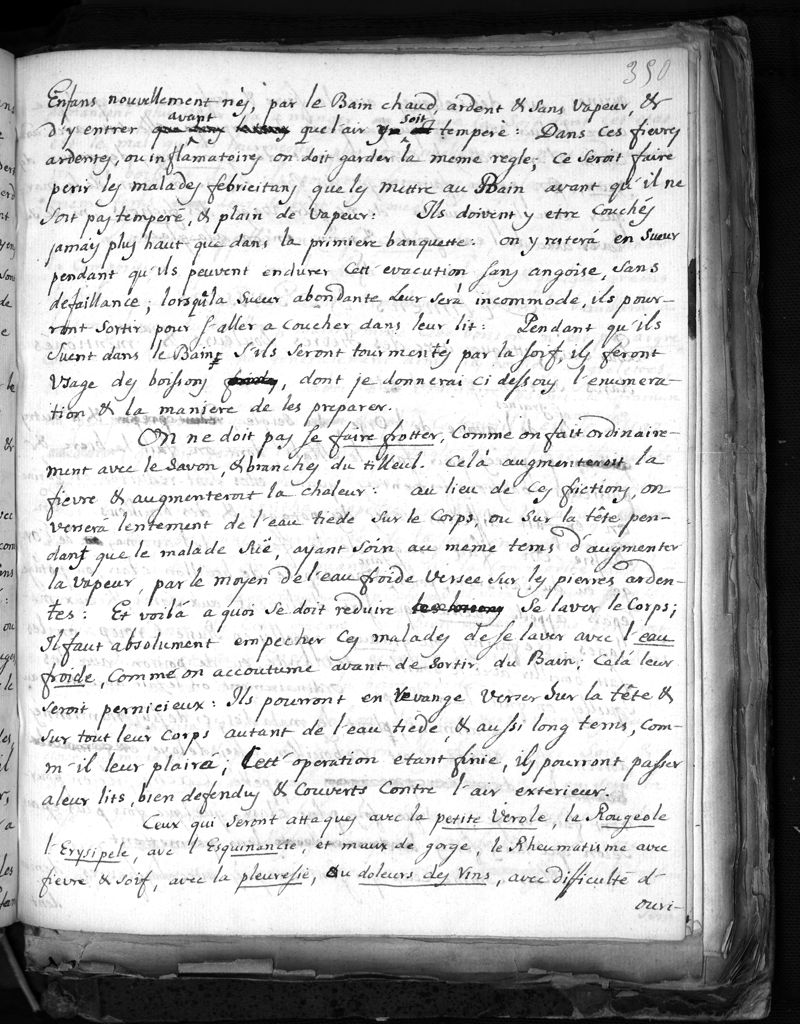 390
Enfans nouvellement néj, par le Bain chaud, ardent & sans vapeur, &
avant soit
d'y entrer que l'air tempere: Dans ces fievres
ardentes, ou inflamatoires on doit garder la meme regle; ce seroit faire
perir les malades febricitans que les mettre au Bain avant qu'il ne
soit pas tempere, & plain de vapeur: Ils doivent y etre Couchés
jamais plus haut que dans la primiere banquette: on y resterá en Sueur
pendant qu'ils peuvent endurer cett'evacution sans angoise, sans
defaillance; lorsqu'la Sueur abondante leur será incommode, ils pour-
ront Sortir pour s'aller a Coucher dans leur lit: Pendant qu'ils
Suent dans le Bain, s'ils seront tourmentés par la soif, ils feront
Usage des boissons, dont je donnerai ci dessous l'enumera-
tion & la maniere de les preparer.
On ne doit pas se faire frotter, Comme on fait ordinaire-
ment avec le Savon, & branches du tilleul. Celá augmenteroit la
fievre & augmenteroit la chaleur: au lieu de Ces frictions, on
verserá lentement de l'eau tiede Sur le Corps, ou Sur la tête pen-
dant que le malade Suë, ayant Soin au meme tems d'augmenter
la Vapeur, par le moyen de l'eau froide Versee sur les pierres arden-
tes: Et voilá a quoi se doit reduire Se laver le Corps;
Il faut absolument empecher Ces malades de se laver avec l'eau
froide, Comme on accoutume avant de Sortir du Bain; Cela leur
Seroit pernicieux: Ils pourront en revange verser Sur la tête &
Sur tout leur Corps autant de l'eau tiede, & aussi long tems, Com-
m'il leur plairá; Cett'operation etant finie, ils pourront passer
a leur lits, bien defendus & Couverts Contre l'air exterieur.
Ceux qui Seront attaques avec la petite Verole, la Rougeole
l'Erysipele, avec l'Esquinancie, et maux de gorge, le Rheumatisme avec
fievre & Soif, avec la pleuresie, Ou doleurs des Vins, avec difficulté d'
ouvi-